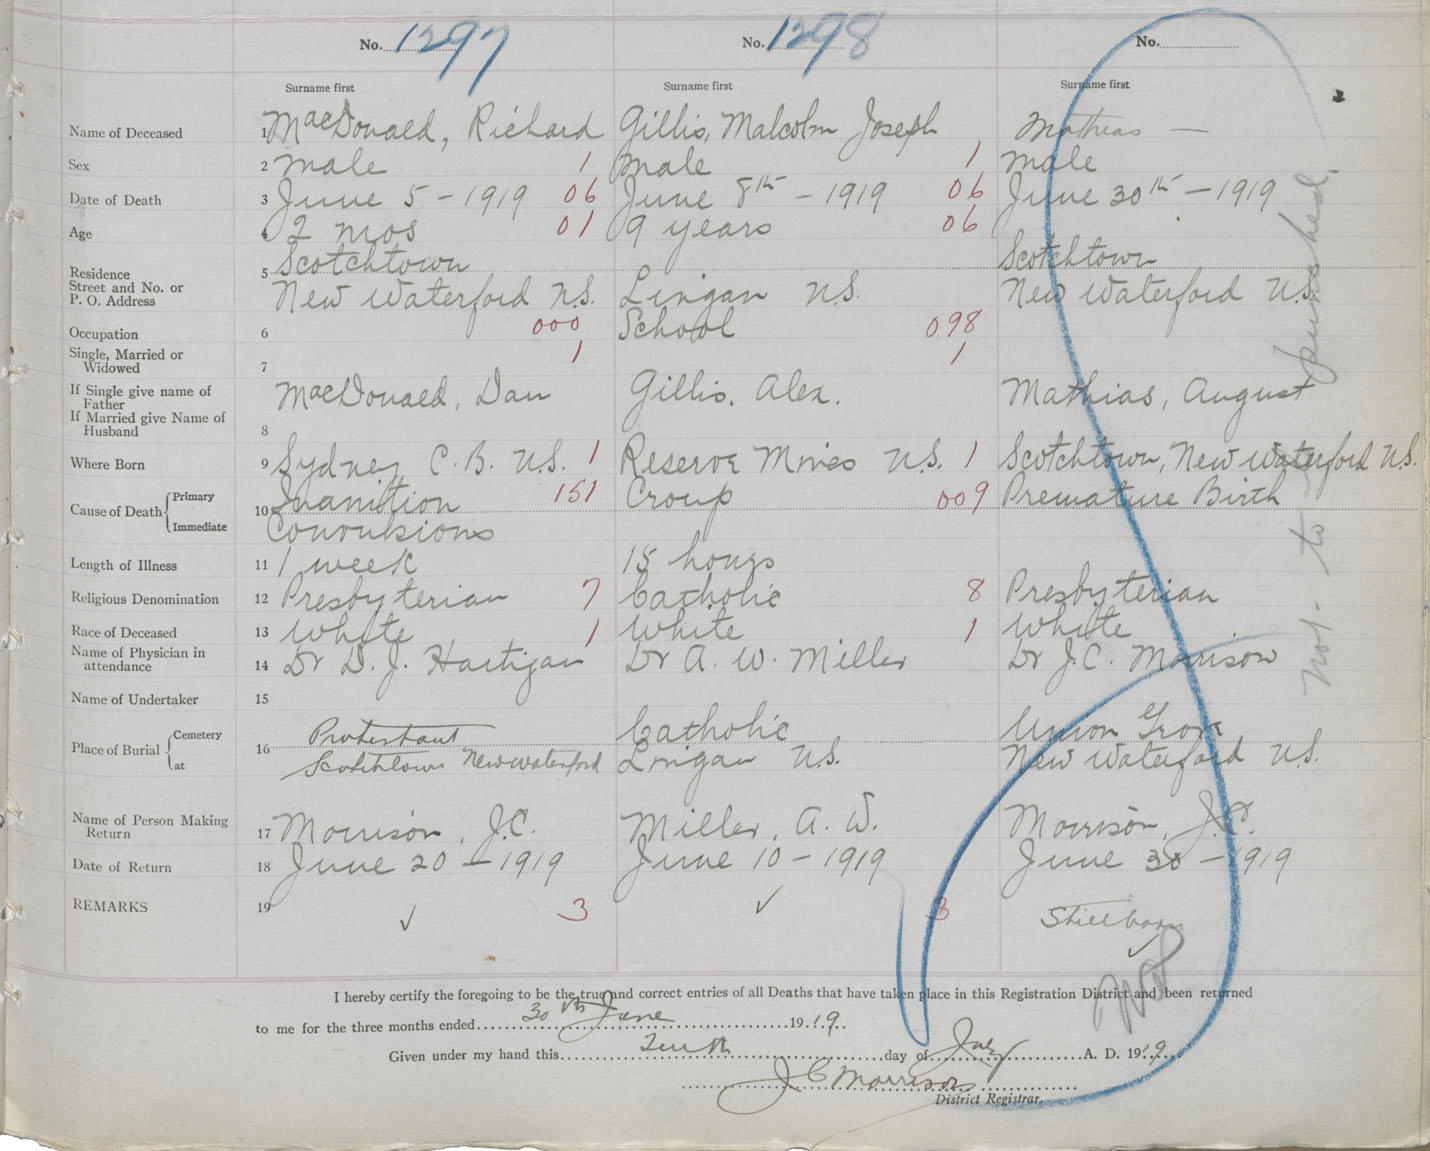 No. 1297 No. 1298 No.
Surname first Surname first Surname first
Name of Deceased 1 MacDonald, Richard Gillis, Malcolm Joseph Mathias —
Sex 2 male 1 male 1 male
Date of Death 3 June 5 - 1919 06 June 8th - 1919 06 June 30th - 1919
Age 4 2 mos 01 9 years 06
Scotchtown Scotchtown
Residence 5
Street and No. or
P. O. Address New Waterford N.S. Lingan N.S. New Waterford N.S.
Occupation 6 000 School 098
Single, Married or
Widowed 7 1 1
If Single give name of
Father MacDonald, Dan Gillis, Alex. Mathias, August
If Married give Name of
Husband 8
Where Born 9 Sydney C.B. N.S. 1 Reserve Mines N.S. 1 Scotchtown, New Waterford N.S.
Cause of Death Primary 10 Inanition 151 Croup 009 Premature Birth
Immediate Convulsions
Length of Illness 11 1 week 15 hours
Religious Denomination 12 Presbyterian 7 Catholic 8 Presbyterian
Race of Deceased 13 White 1 White 1 White
Name of Physician in
attendance 14 Dr D. J. Hartigan Dr A. W. Miller Dr J. C. Morrison
Name of Undertaker 15
Place of Burial Cemetery 16 Protestant Catholic Union Grove
at Scotchtown New Waterford Lingan N.S. New Waterford N.S.
Name of Person Making
Return 17 Morrison, J.C. Miller, A. W. Morrison, J.C.
Date of Return 18 June 20 - 1919 June 10 - 1919 June 30 - 1919
REMARKS 19 ✓ 3 ✓ 3 Stillborn ✓
Not to punched.
Not
I hereby certify the foregoing to be the true and correct entries of all Deaths that have taken place in this Registration District and been returned
to me for the three months ended 30th June 1919.
Given under my hand this Tenth day of July A. D. 1919
J C Morrison
District Registrar.